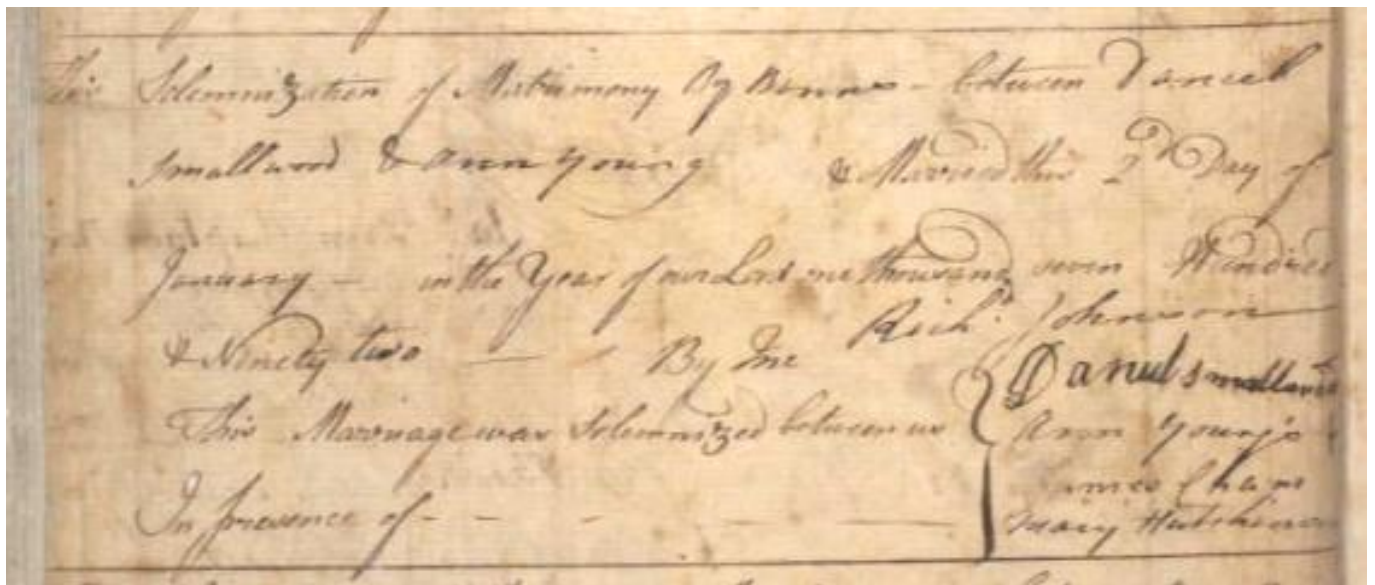 This Solemnization of Matrimony By Banns - between Daniel
Smallwood & Ann Young & Married this 2d Day of
January - in the Year of our Lord one thousand seven Hundred
& Ninety two - By Me Richd. Johnson
This Marriage was Solemnized between us Daniel Smallwood
Ann Young's
James
In presence of - - - - Mary Hutchinson